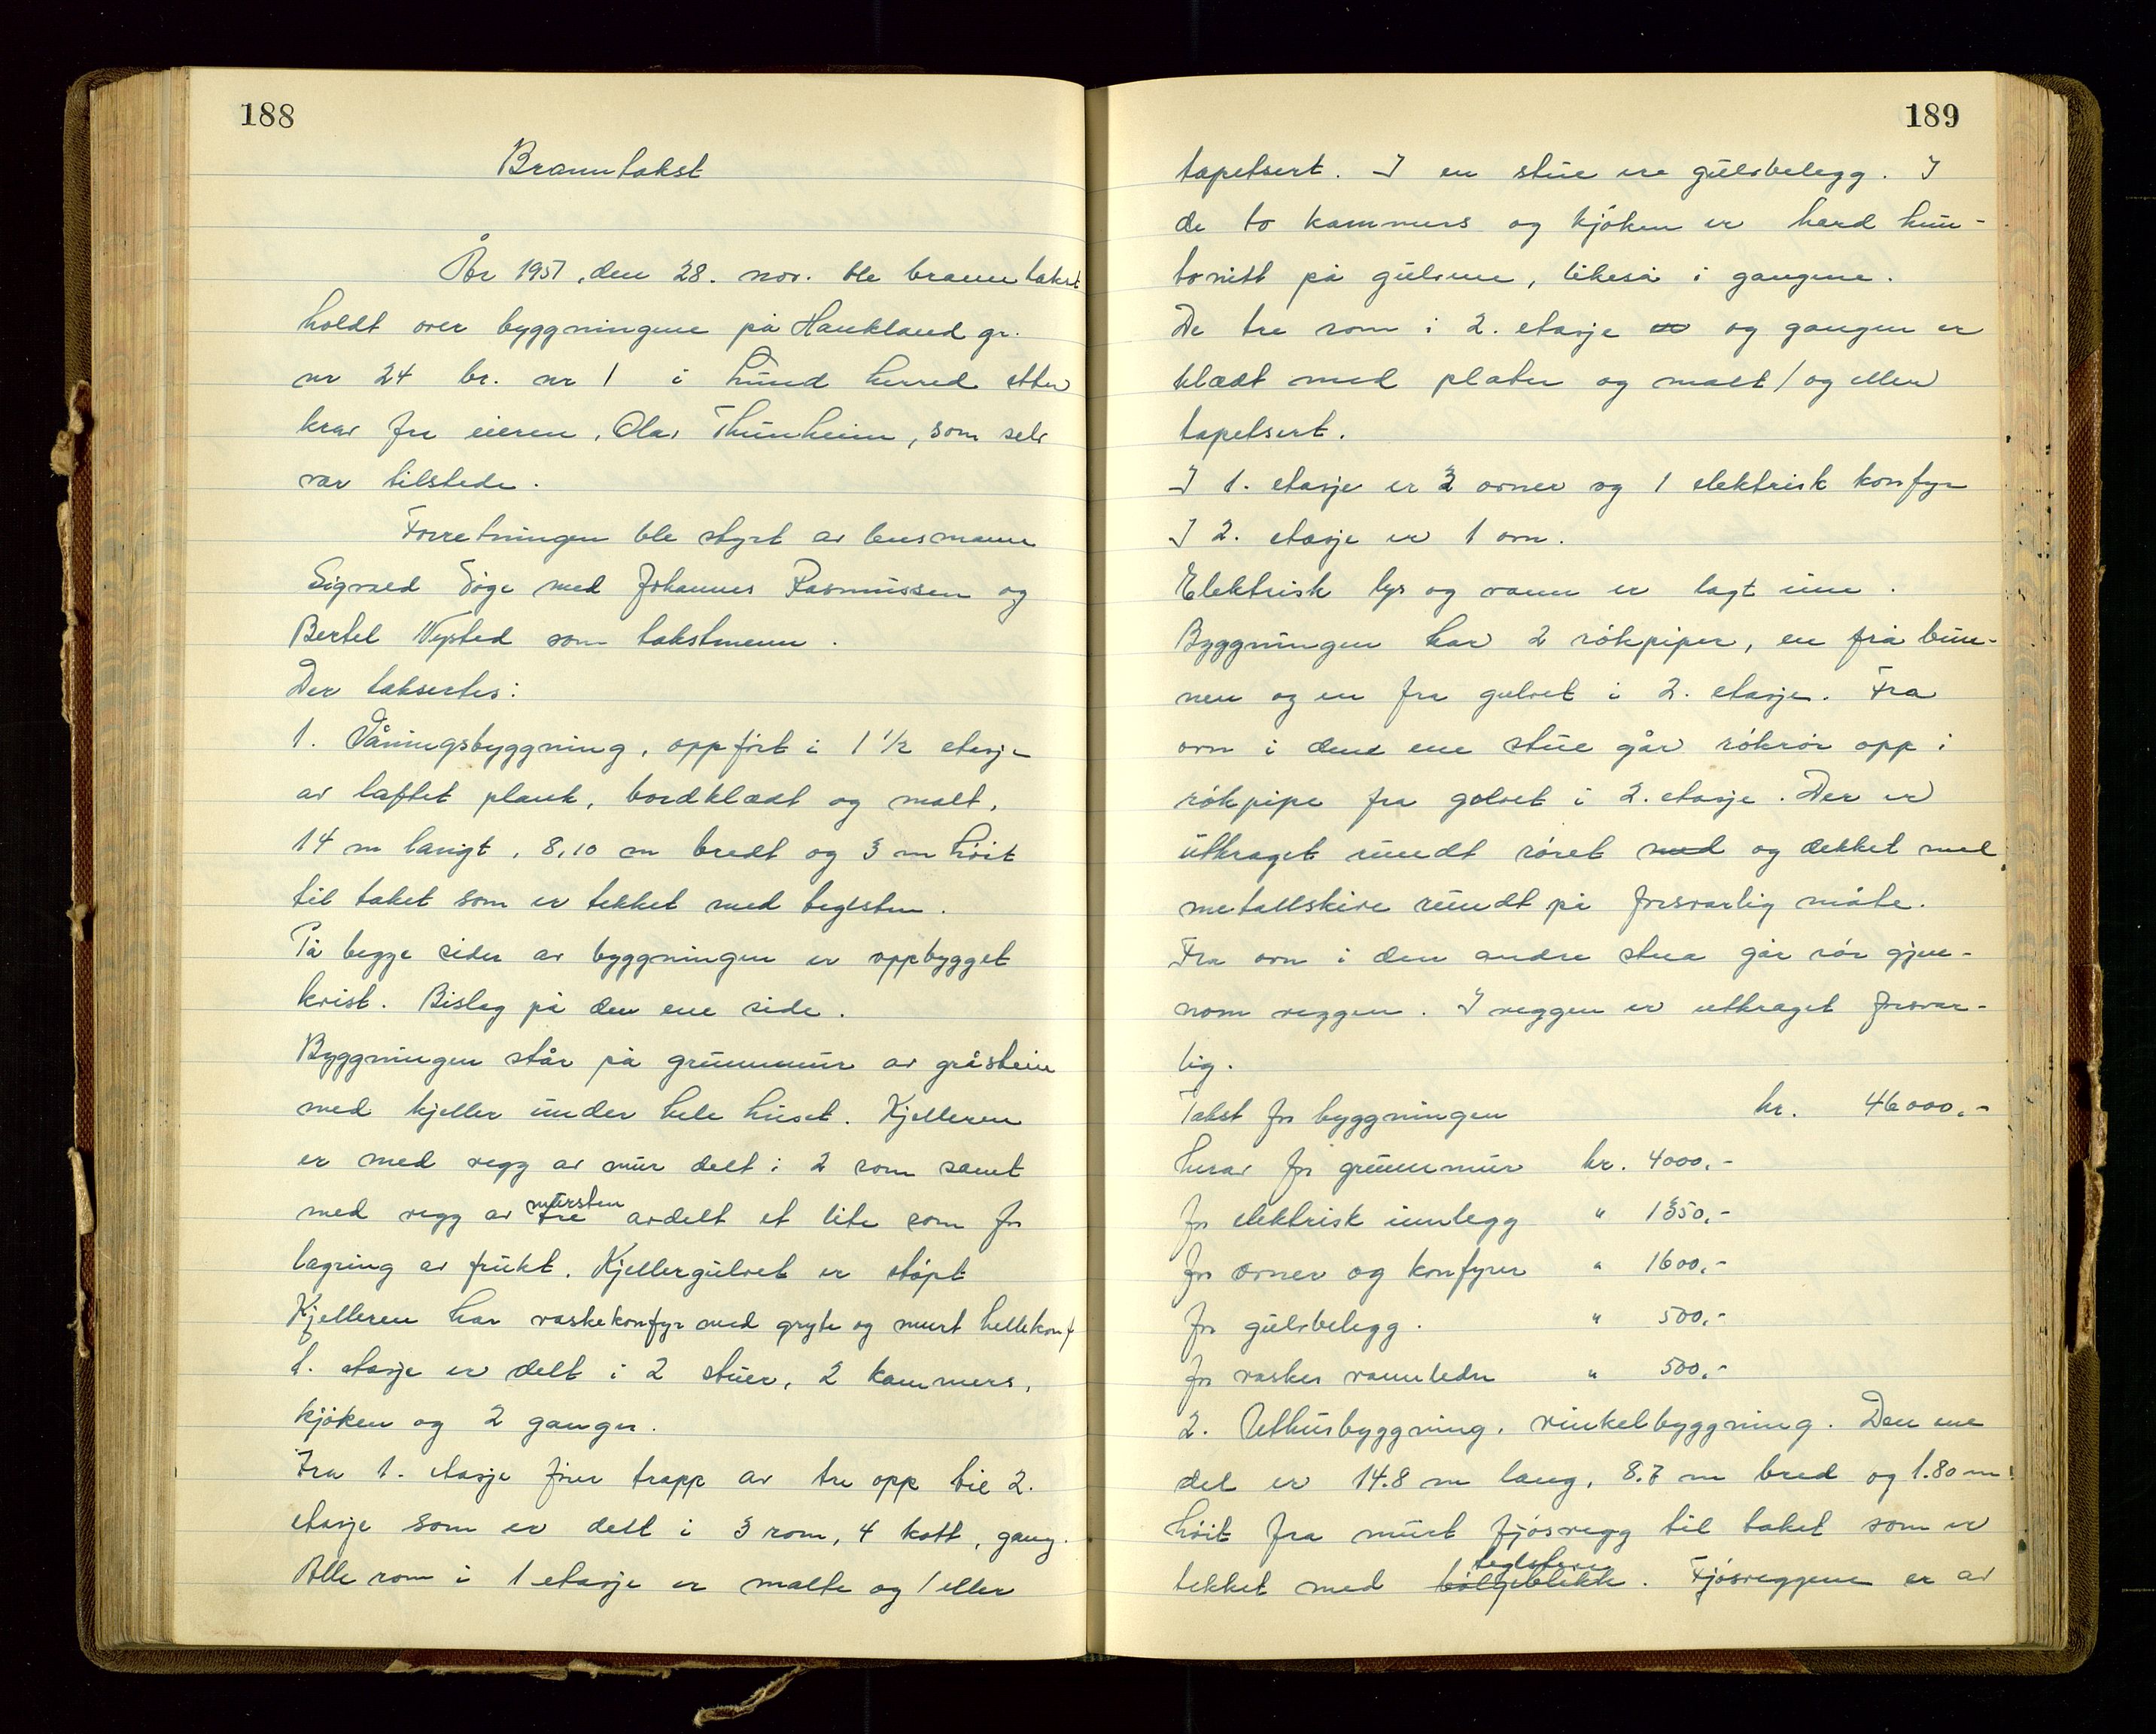 188
Branntakst
År 1957, den 28. nov. ble branntakst
holdt over byggningene på Haukland gr.
nr 24 br. nr 1 i Lund herred etter
krav fra eieren, Olav Thunheim, som selv
var tilstede.
Forretningen ble styrt av lensmann
Sigvald Jöge med Johannes Rasmussen og
Bertel Nysted som takstmenn.
Der taksertes:
1. Våningsbyggning, oppfört i 1 1/2 etasje
av laftet plank, bordklædt og malt,
14 m langt, 8,10 m bredt og 3 m höit
til taket som er tekket med teglsten.
På begge sider av byggningen er oppbygget
kvist. Bislag på den ene side.
Byggningen står på grunnmur av gråstein
med kjeller under hele huset. Kjelleren
er med vegg av mur delt i 2 rom samt
med vegg av tre mursten avdelt et lite rom for
lagring av frukt. Kjellergulvet er stöpt
Kjelleren har vaskekomfyr med gryte og murt hellekomf
1. etasje er delt i 2 stuer, 2 kammers,
kjöken og 2 ganger.
Fra 1. etasje förer trapp av tre opp til 2.
etasje som er delt i 3 rom, 4 kott, gang.
Alle rom i 1 etasje er malte og / eller
189
tapetsert. I en stue ere gulvbelegg. I
de to kammers og kjöken er hard hun-
tonitt på gulvene, likeså i gangene.
De tre rom i 2. etasje er og gangen er
klædt med plater og malt / og eller
tapetsert.
I 1. etasje er 3 ovner og 1 elektrisk komfyr
I 2. etasje er 1 ovn.
Elektrisk lys og vann er lagt inn.
Byggningen har 2 rökpiper, en frå bun-
nen og en fra gulvet i 2. etasje. Fra
ovn i dene ene stue går rökrör opp i
rökpipe fra golvet i 2. etasje. Der er
utkraget rundt röret med og dekket med
metallskive rundt på forsvarlig måte.
Fra ovn i den andre stua går rör gjen-
nom veggen. I veggen er utkraget forsvar-
lig.
Takst for byggningen kr. 46000,-
herav for grunnmur kr. 4000,-
for elektrisk innlegg " 1350,-
for ovner og komfyrer " 1600,-
for gulvbelegg. " 500,-
for vasker vannledn " 500,-
2. Uthusbyggning, vinkelbyggning. Den ene
del er 14.8 m lang, 8.7 m bred og 1.80 m
höit fra murt fjösvegg til taket som er
tekket med bölgeblikk teglstein. Fjösveggene er av